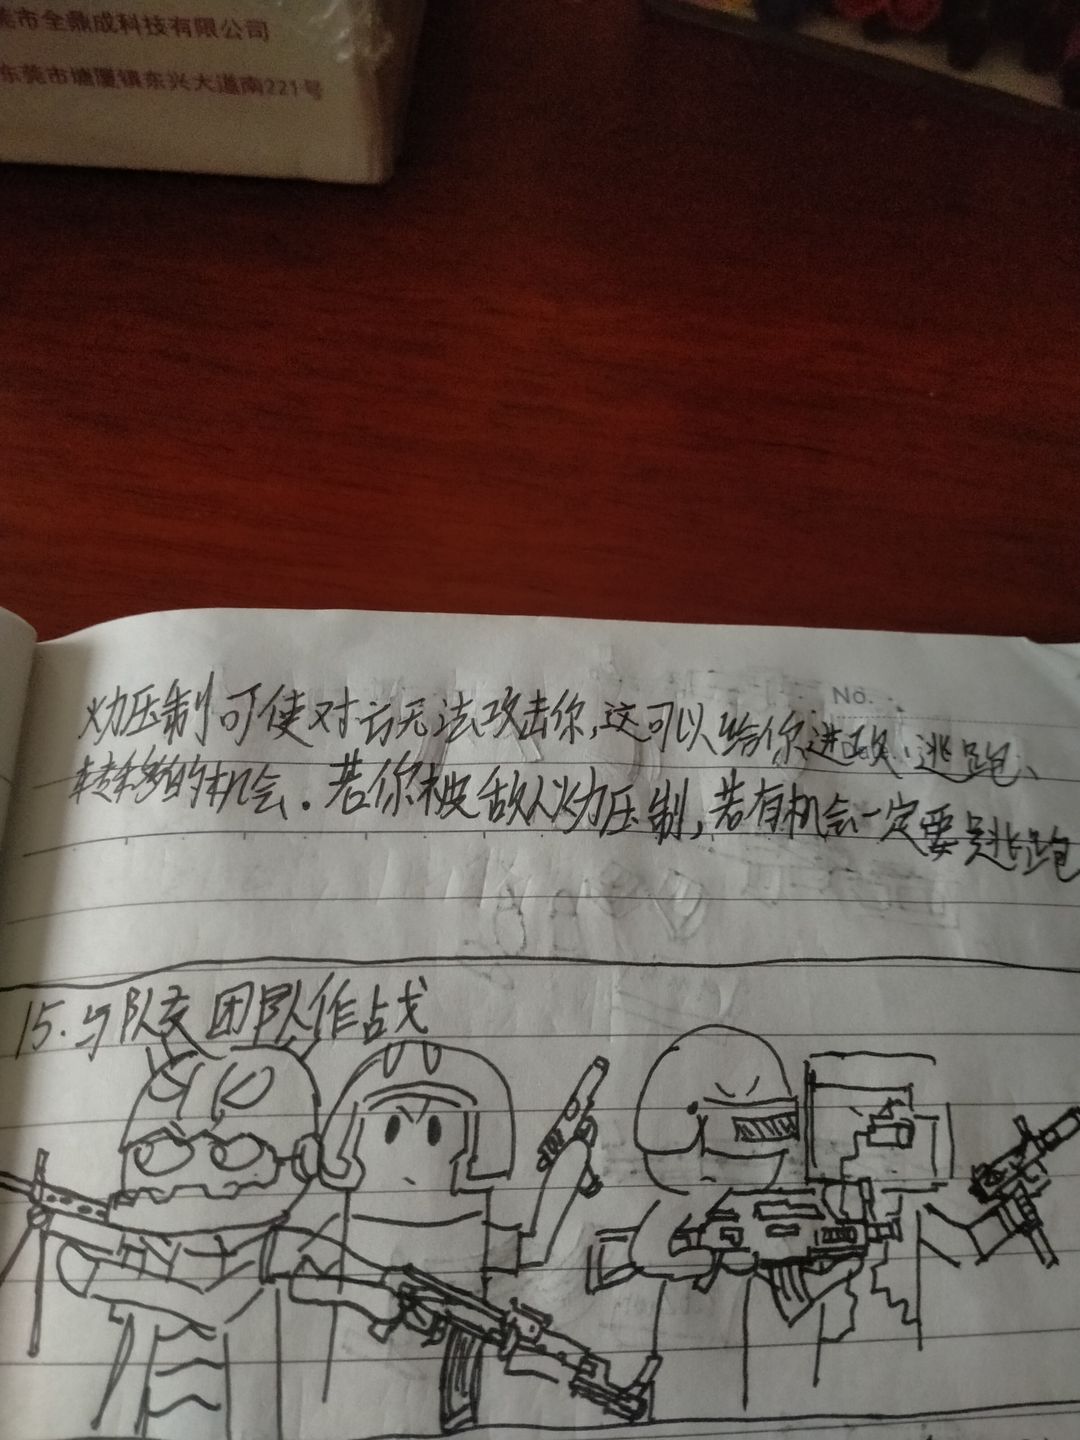 莞市全鼎成科技有限公司
东莞市塘厦镇东兴大道南221号
No.
火力压制可使对方无法攻击你,这可以给你进攻、逃跑、
转移的机会.若你被敌人火力压制,若有机会一定要逃跑
15.与队友团队作战